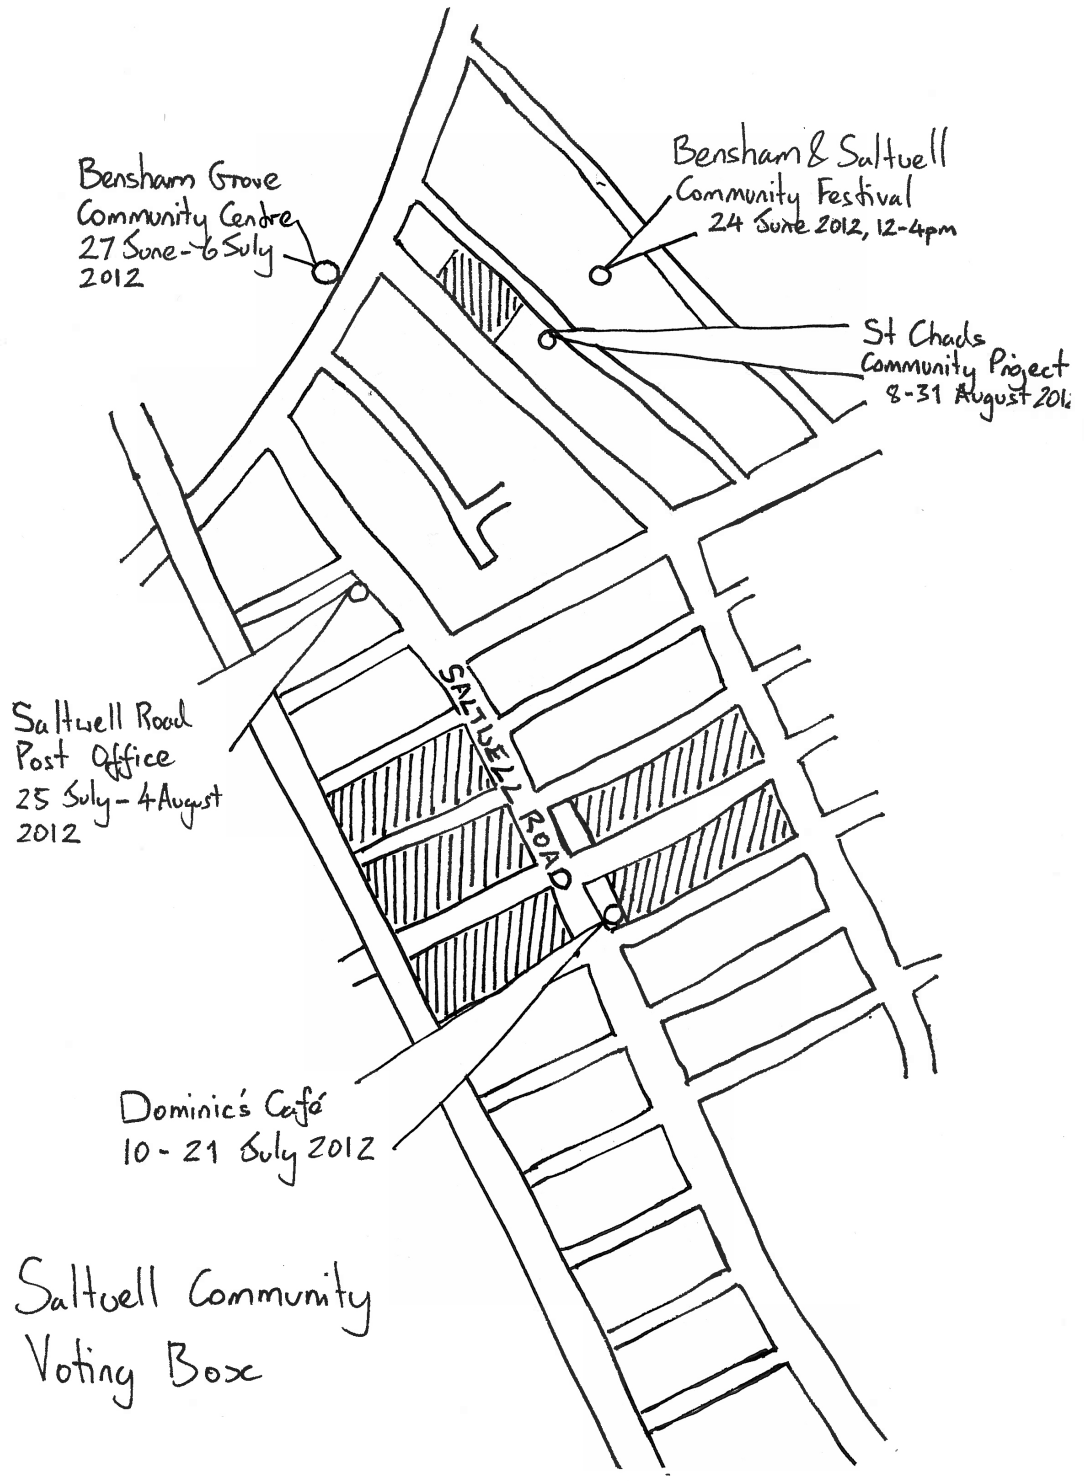 Bensham Grove
Community Centre
27 June - 6 July
2012
Bensham & Saltwell
Community Festival
24 June 2012, 12-4pm
St Chads
Community Project
8-31 August 201
SALTWELL ROAD
Saltwell Road
Post Office
25 July - 4 August
2012
Dominic's Café
10 - 21 July 2012
Saltwell Community
Voting Box